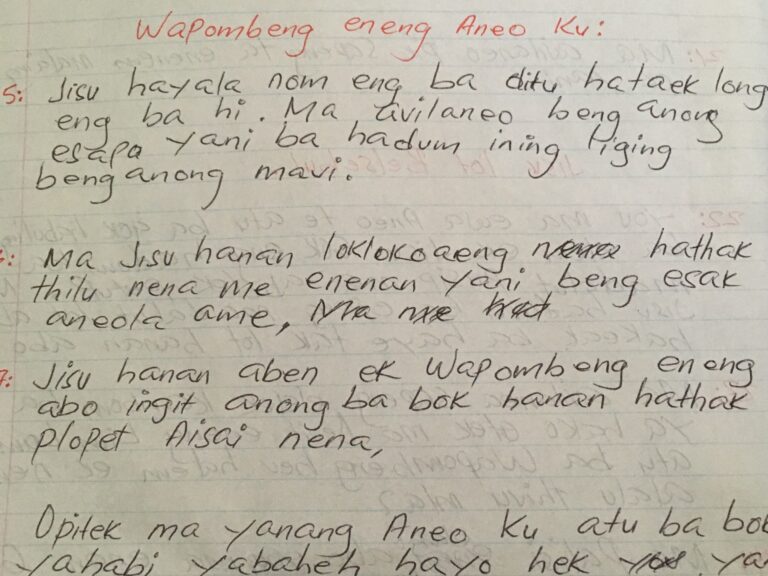 Wapombeng eneng Aneo Ku:
5: Jisu hayala nom eng ba ditu hataek long
eng ba hi. Ma, avilaneo beng anong
esapa yani ba hadum ining tiging
beng anong mavi.
6: Ma Jisu hanan loklokoaeng hathak
thilu nena me enenan yani beng esak
aneola ame, Ma
7: Jisu hanan aben ek Wapombeng eneng
abo ingit anong ba bok hanan hathak
plopet Aisai nena,
Opitek ma yanang Aneo Ku atu ba bok
yahabi yabaheh hayo hek